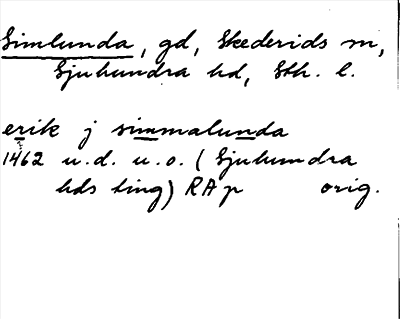 Simlunda, gd, Skederids sn,
Sjuhundra hd, Sth. l.
erik j simmalunda
1462 u.d. u.o. (Sjuhundra
hds ting) RAp orig.